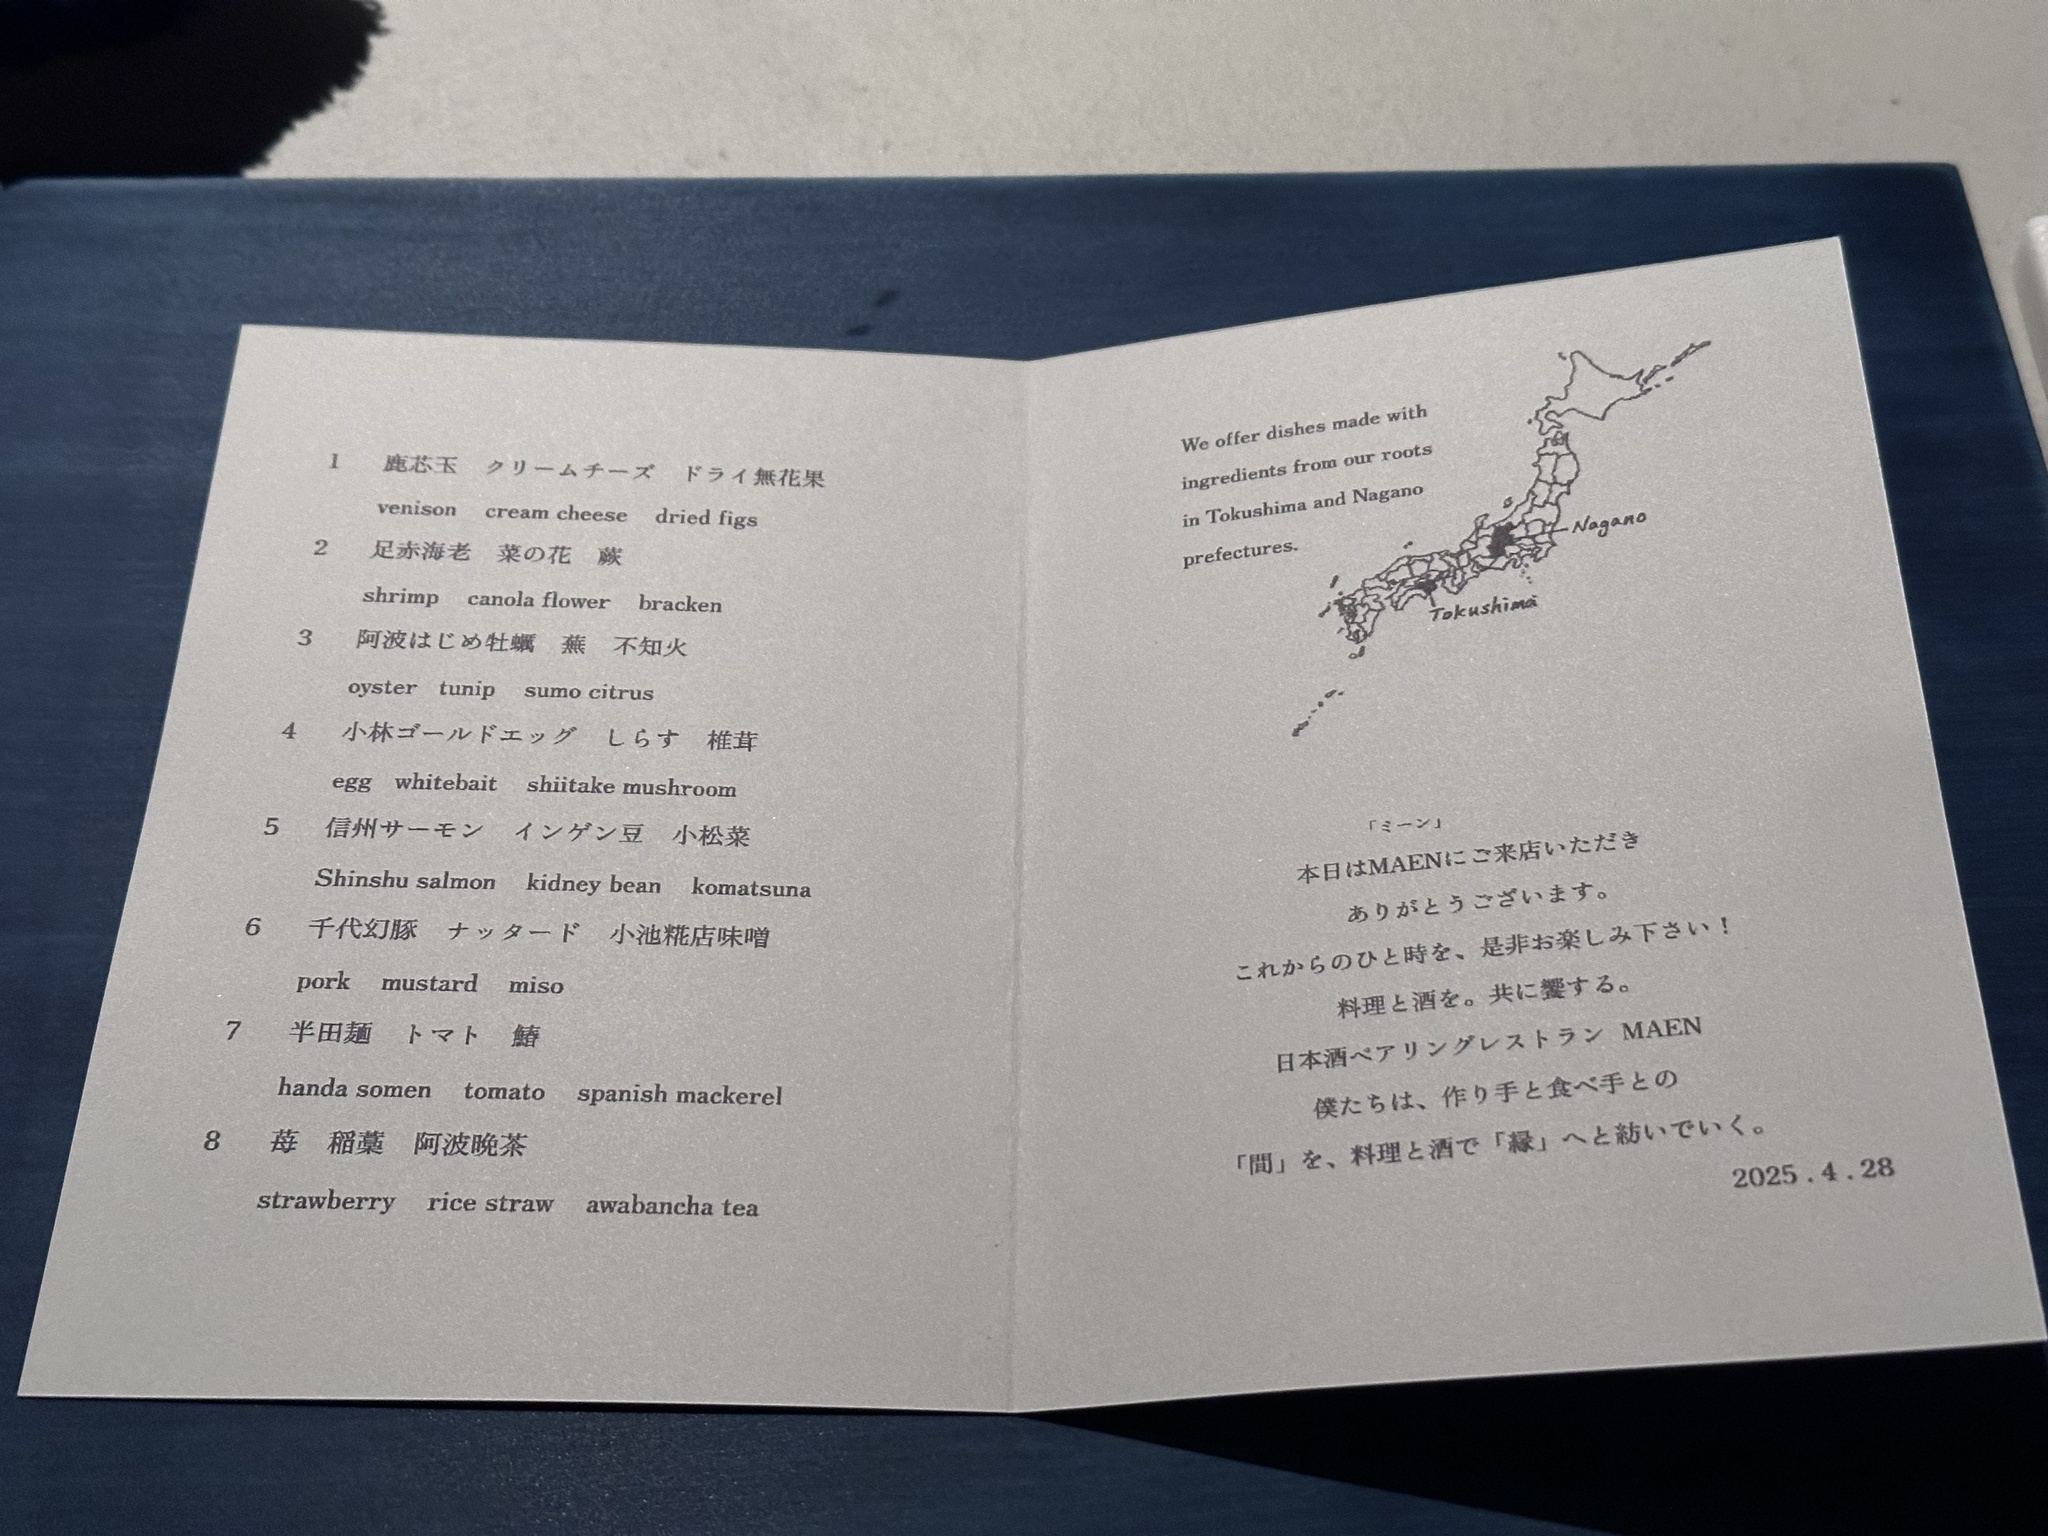 1 鹿芯玉 クリームチーズ ドライ無花果
venison cream cheese dried figs
2 足赤海老 菜の花 蕨
shrimp canola flower bracken
3 阿波はじめ牡蠣 蕪 不知火
oyster tunip sumo citrus
4 小林ゴールドエッグ しらす 椎茸
egg whitebait shiitake mushroom
5 信州サーモン インゲン豆 小松菜
Shinshu salmon kidney bean komatsuna
6 千代幻豚 ナッタード 小池糀店味噌
pork mustard miso
7 半田麺 トマト 鰆
handa somen tomato spanish mackerel
8 苺 稲藁 阿波晩茶
strawberry rice straw awabancha tea
We offer dishes made with
ingredients from our roots
in Tokushima and Nagano
prefectures.
Nagano
Tokushima
「ミーン」
本日はMAENにご来店いただき
ありがとうございます。
これからのひと時を、是非お楽しみ下さい！
料理と酒を。共に饗する。
日本酒ペアリングレストラン MAEN
僕たちは、作り手と食べ手との
「間」を、料理と酒で「縁」へと紡いでいく。
2025.4.28